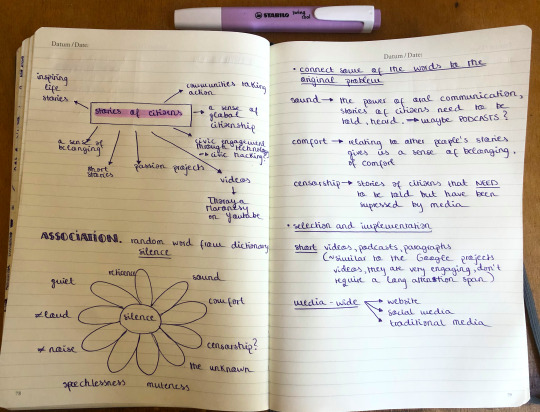 STABILO swing cool
Datum / Date:
inspiring
life
stories
communities taking
action
stories of citizens
a sense of
global
citizenship
a sense of
belonging
short
stories
passion projects
civic engagement
through technology
civic hacking?
videos
on youtube
ASSOCIATION. random word from dictionary
silence
quiet
sound
≠ loud
comfort
silence
≠ noise
censorship?
the unknown
speechlessness
muteness
Datum / Date:
• connect some of the words to the
original problem
sound → the power of oral communication,
stories of citizens need to be
told, heard → maybe PODCASTS?
comfort → relating to other people's stories
gives us a sense of belonging,
of comfort
censorship → stories of citizens that NEED
to be told but have been
supressed by media
• selection and implementation
short videos, podcasts, paragraphs
(~similar to the Google projects
videos, they are very engaging, don't
require a long attention span)
media-wide → website
→ social media
→ traditional media